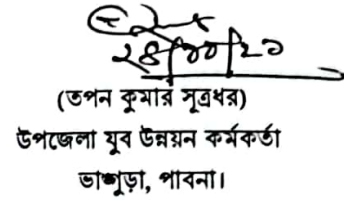 ২৪/১০/২১
(তপন কুমার সূত্রধর)
উপজেলা যুব উন্নয়ন কর্মকর্তা
ভাঙ্গুড়া, পাবনা।